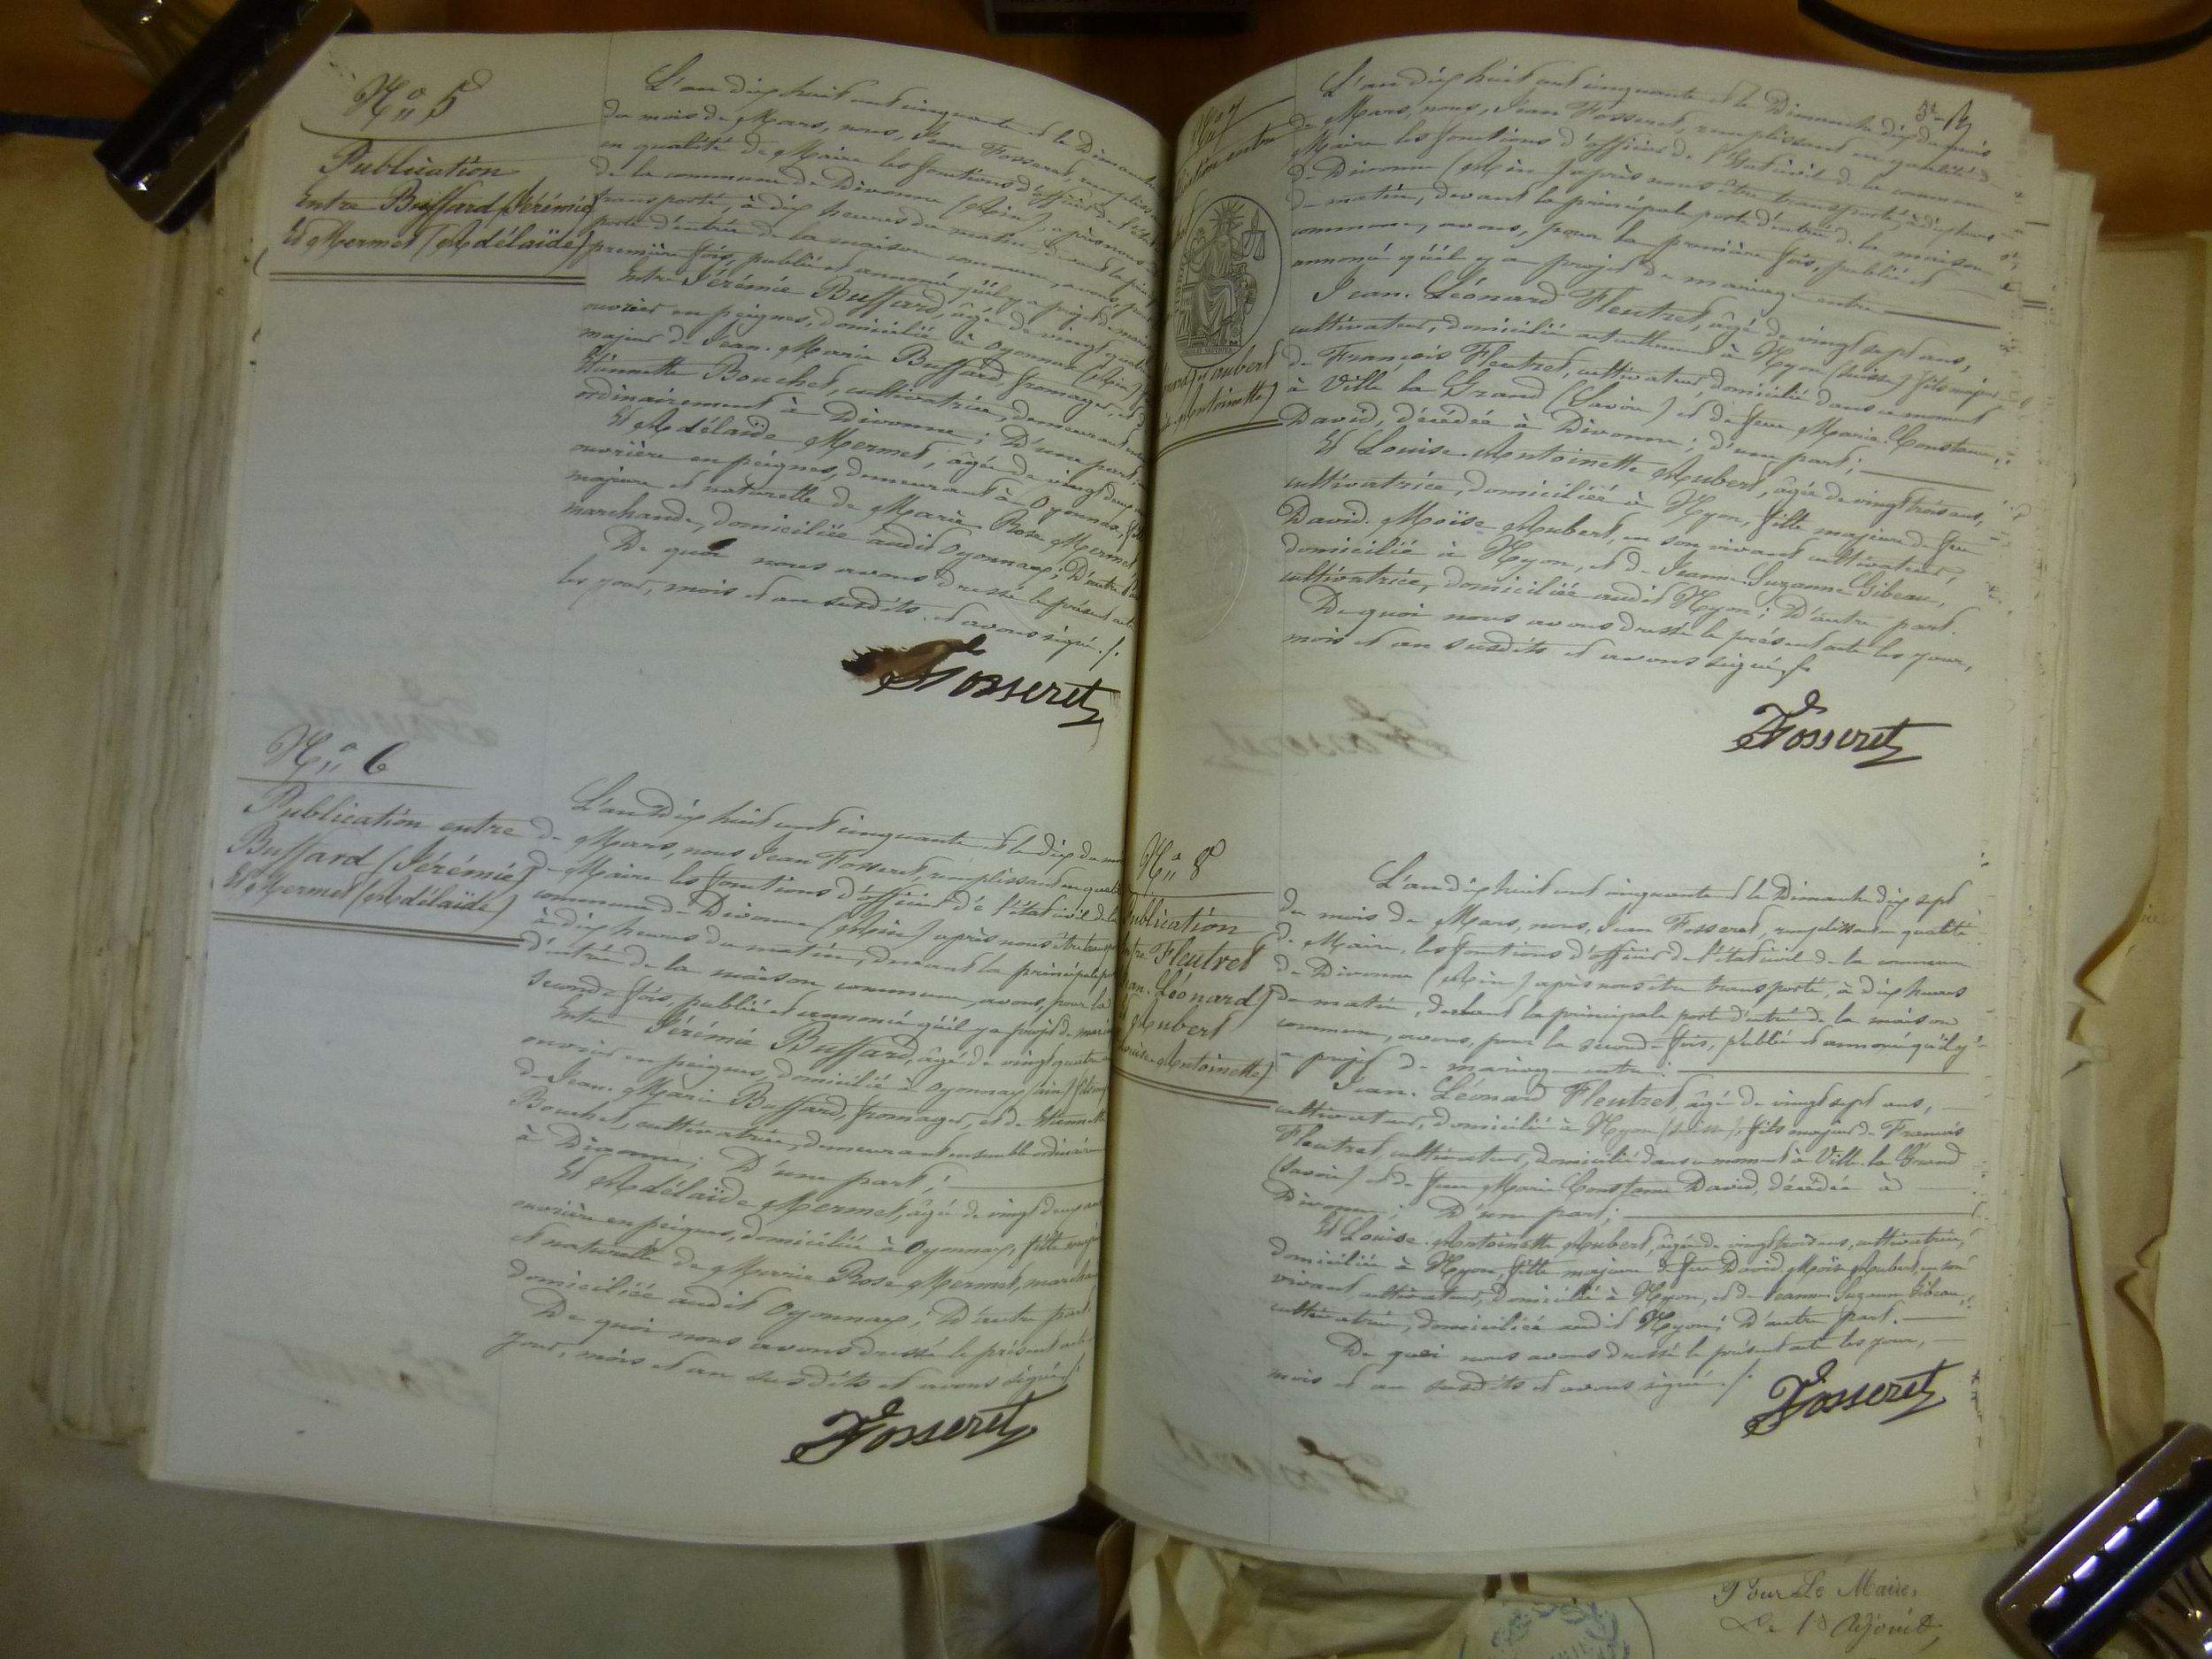 Nº 5
Publication
Entre Buffard (Jérémie)
Et Mermet (Adélaïde)
L'an dix huit cent cinquante et le Dimanche
du mois de Mars, nous, Jean Fosseret,
en qualité de Maire les fonctions d'officier de l'état
de la commune de Divonne (Ain), après nous
transporté, à dix heures du matin, devant la
porte d'entrée de la maison commune, avons, pour
première fois, publié et annoncé qu'il y a projet de
Entre Jérémie Buffard, âgé de vingt quatre
ouvrier en peignes, domicilié à Oyonnax (Ain)
majeur de Jean-Marie Buffard, fromager, et
Etiennette Bouchet, cultivatrice, demeurant
ordinairement à Divonne; D'une part;
Et Adélaïde Mermet, âgée de vingt deux
ouvrière en peignes, demeurant à Oyonnax,
majeure et naturelle de Marie Rose Mermet
marchande, domiciliée audit Oyonnax; D'autre
De quoi nous avons dressé le présent acte
les jour, mois et an susdits et avons signé./.
Fosseret
Nº 6
Publication entre
Buffard (Jérémie)
Et Mermet (Adélaïde)
L'an Dix huit cent cinquante et le dix du
de Mars, nous Jean Fosseret, remplissant en qualité
de Maire les fonctions d'officier de l'état civil de la
commune de Divonne (Ain) après nous être
à dix heures du matin, devant la principale
d'entrée de la maison commune avons, pour la
seconde fois, publié et annoncé qu'il y a projet de
Entre Jérémie Buffard, âgé de vingt quatre
ouvrier en peignes, domicilié à Oyonnax (Ain)
de Jean-Marie Buffard, fromager, et de Etiennette
Bouchet, cultivatrice, demeurant ensemble
à Divonne; D'une part;
Et Adélaïde Mermet, âgée de vingt deux ans
ouvrière en peignes, domiciliée à Oyonnax, fille
et naturelle de Marie Rose Mermet,
domiciliée audit Oyonnax; D'autre part
De quoi nous avons dressé le présent acte
jour, mois et an susdits et avons signé
Fosseret
Nº 7
entre
et Aubert
Antoinette)
L'an dix huit cent cinquante et le Dimanche dix du mois
de Mars, nous, Jean Fosseret, remplissant en qualité de
Maire les fonctions d'officier de l'état civil de la commune
de Divonne (Ain) après nous être transporté, à dix heures
du matin, devant la principale porte d'entrée de la maison
commune, avons, pour la première fois, publié et
annoncé qu'il y a projet de mariage entre
Jean-Léonard Fleutret, âgé de vingt sept ans,
cultivateur, domicilié actuellement à Nyon (Suisse) fils majeur
de François Fleutret, cultivateur, domicilié dans ce moment
à Ville la Grand (Savoie) et de feue Marie-Constance
David, décédée à Divonne; d'une part;
Et Louise-Antoinette Aubert, âgée de vingt trois ans,
cultivatrice, domiciliée à Nyon, fille majeure de feu
David-Moïse Aubert, en son vivant cultivateur,
domicilié à Nyon, et de Jeanne-Suzanne Gibeau,
cultivatrice, domiciliée audit Nyon; D'autre part.
De quoi nous avons dressé le présent acte les jour,
mois et an susdits et avons signé./.
Fosseret
Nº 8
Publication
Entre Fleutret
Jean-Léonard)
Et Aubert
Louise-Antoinette)
L'an dix huit cent cinquante et le Dimanche dix sept
du mois de Mars, nous, Jean Fosseret, remplissant en qualité
de Maire, les fonctions d'officier de l'état civil de la commune
de Divonne (Ain) après nous être transporté, à dix heures
du matin, devant la principale porte d'entrée de la maison
commune, avons, pour la seconde fois, publié et annoncé qu'il y
a projet de mariage entre:
Jean-Léonard Fleutret, âgé de vingt sept ans,
cultivateur, domicilié à Nyon (Suisse), fils majeur de François
Fleutret cultivateur, domicilié dans ce moment à Ville-la-Grand
(Savoie) et de feue Marie Constance David, décédée à
Divonne; D'une part;
Et Louise-Antoinette Aubert, âgée de vingt trois ans, cultivatrice,
domiciliée à Nyon, fille majeure de feu David-Moïse Aubert, en son
vivant cultivateur, domicilié à Nyon, et de Jeanne-Suzanne Gibeau,
cultivatrice, domiciliée audit Nyon; D'autre part.
De quoi nous avons dressé le présent acte les jour,
mois et an susdits et avons signé./.
Fosseret
Pour Le Maire,
L'Adjoint,